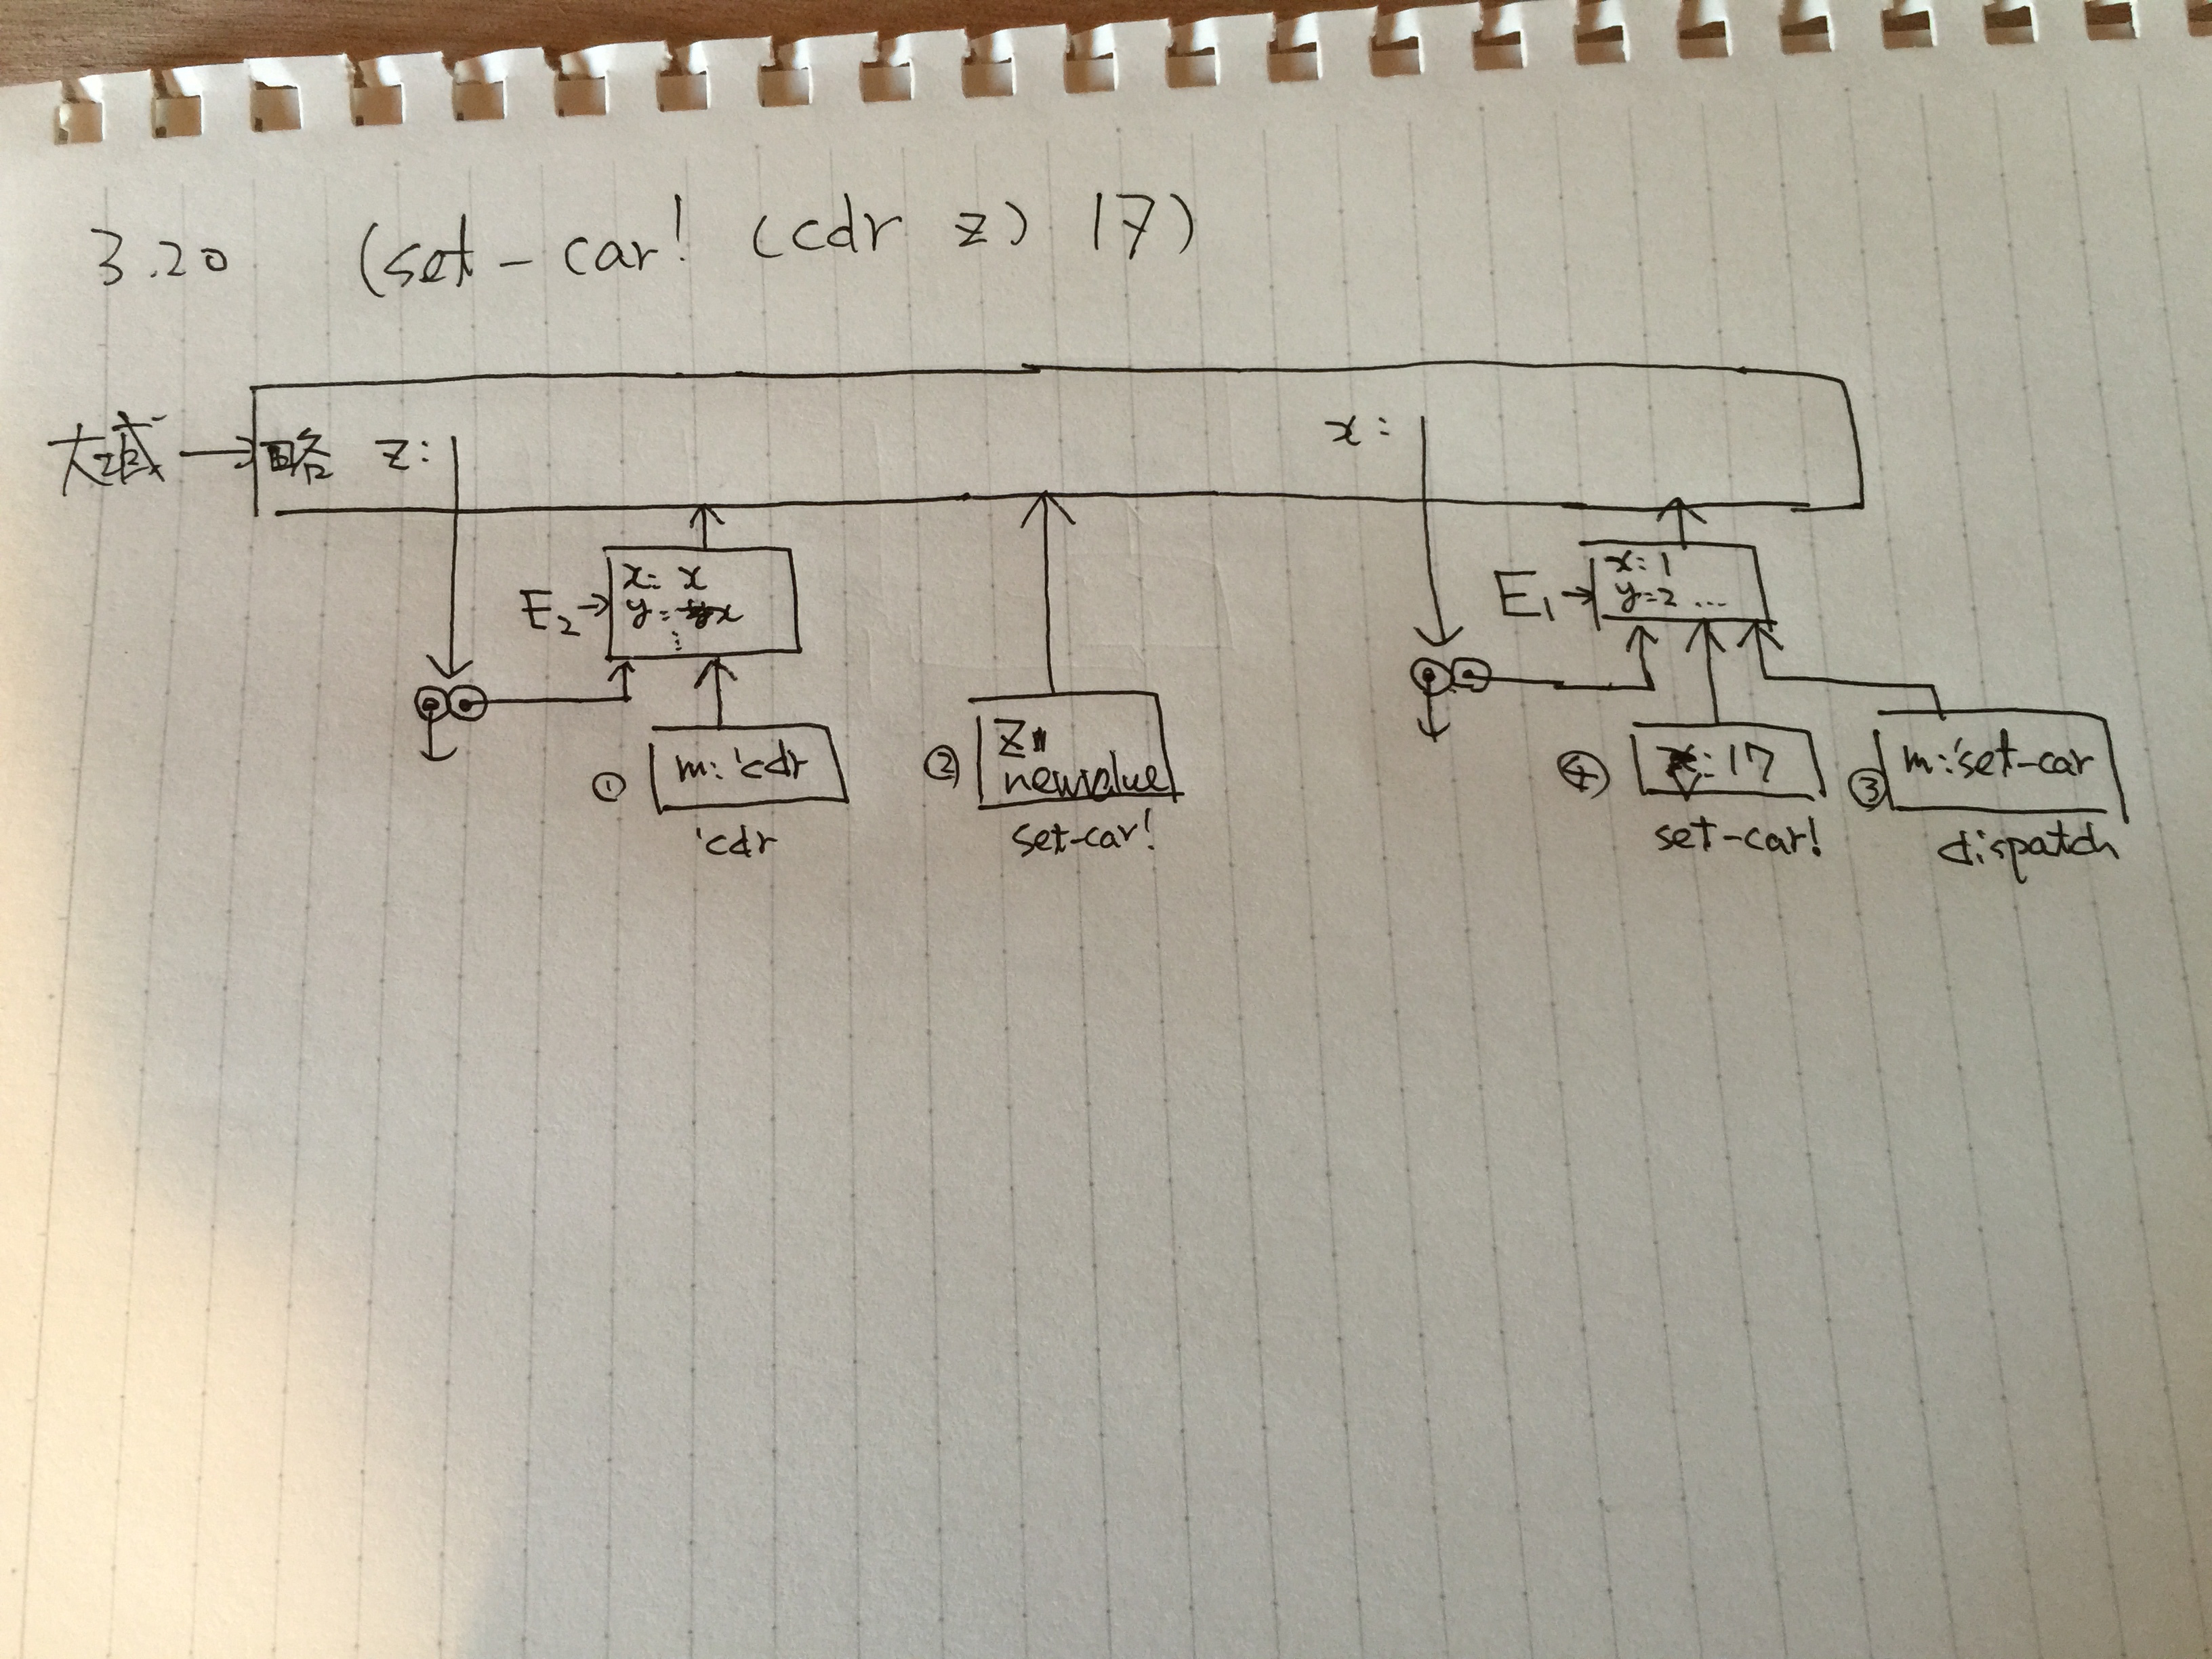 3.20 (set-car! (cdr z) 17)
大域 → 略 z:
x:
E2 →
x: x
y: x
⋮
E1 →
x: 1
y=2 ...
① m: 'cdr
'cdr
② z
newvalue
set-car!
④ v: 17
set-car!
③ m: 'set-car
dispatch